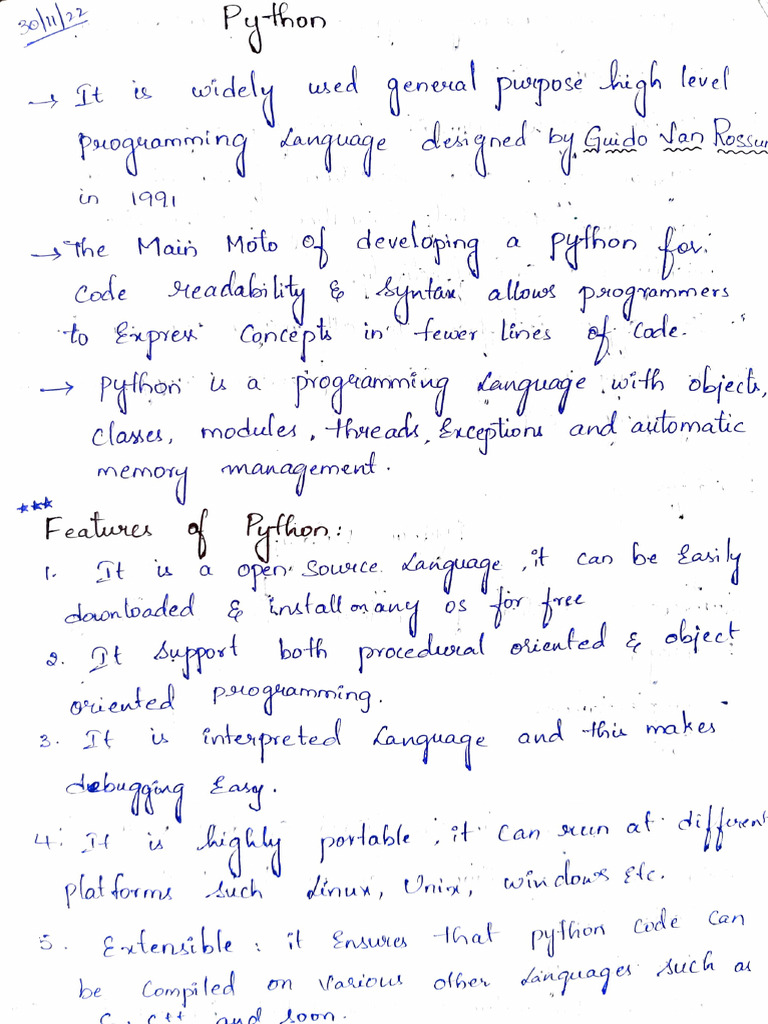 30/11/22
Python
→ It is widely used general purpose high level
programming Language designed by Guido Van Rossum
in 1991
→ The Main Moto of developing a python for
code readability & syntax allows programmers
to Express Concepts in fewer lines of code.
→ python is a programming Language with objects,
classes, modules, threads, Exceptions and automatic
memory management.
***
Features of Python:
1. It is a open source Language, it can be Easily
downloaded & install on any os for free
2. It support both procedural oriented & object
oriented programming.
3. It is interpreted Language and this makes
debugging Easy.
4. It is highly portable, it can run at different
platforms such Linux, Unix, windows Etc.
5. Extensible: it Ensures that python code can
be compiled on various other Languages such as
C, C++ and soon.